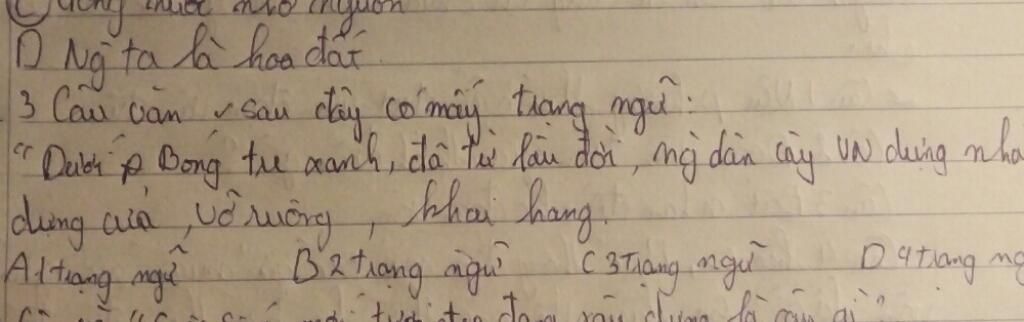 C) uống nước nhớ nguồn
D) Ng ta là hoa đất.
3 Câu văn sau đây có mấy trạng ngữ:
"Dưới Bóng tre xanh, đã từ lâu đời, ng dân cày VN dựng nhà
dựng cửa, vỡ ruộng, khai hang.
A 1 trạng ngữ B 2 trạng ngữ C 3 Trạng ngữ D 4 trạng ng